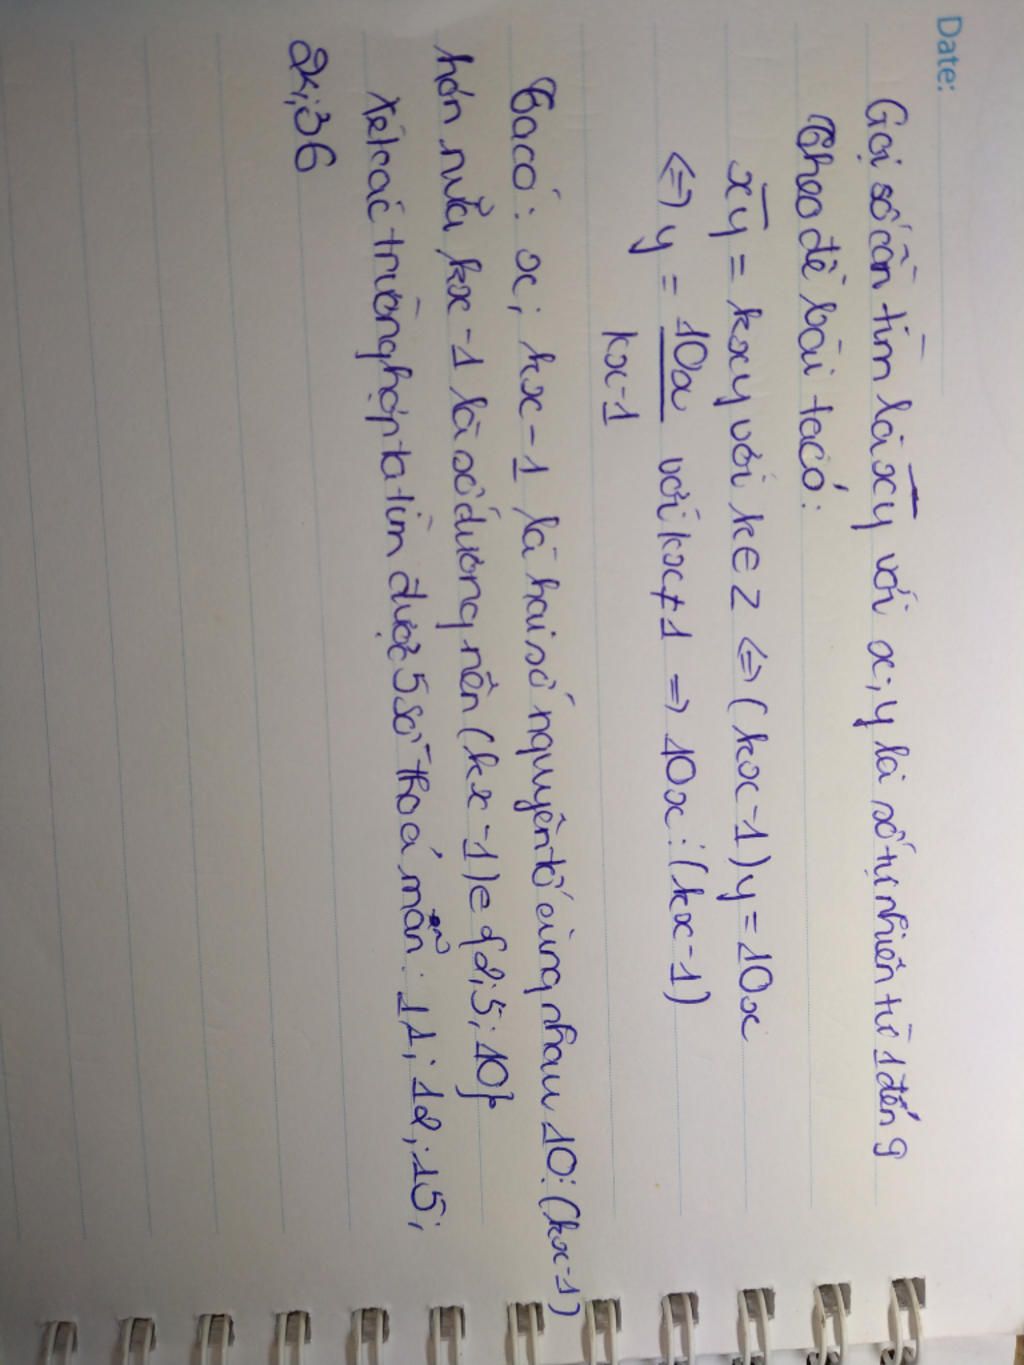 Date:
Gọi số cần tìm là x̅y̅ với x; y là số tự nhiên từ 1 đến 9
Theo đề bài ta có:
x̅y̅ = kxy với k ∈ Z ⇔ (kx-1)y = 10x
⇔ y = 10x / kx-1 với kx ≠ 1 ⇒ 10x ⋮ (kx-1)
Ta có: x; kx-1 là hai số nguyên tố cùng nhau 10 ⋮ (kx-1)
hơn nữa kx-1 là số dương nên (kx-1) ∈ {2; 5; 10}
Xét các trường hợp ta tìm được 5 số thoả mãn: 11; 12; 15;
24; 36